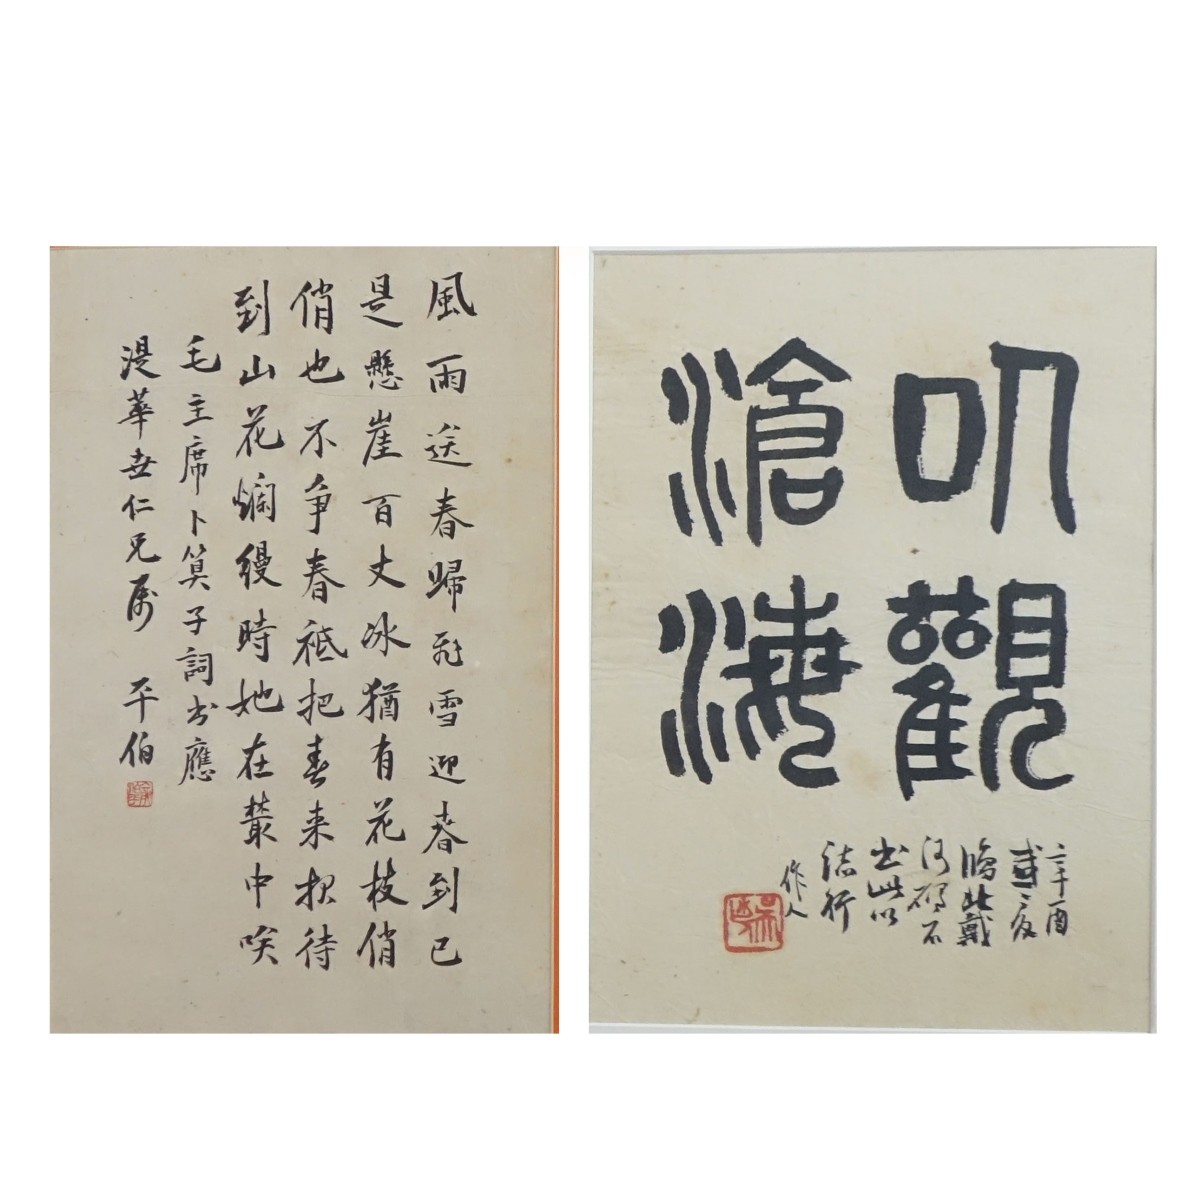 風雨送春歸飛雪迎春到已
是懸崖百丈冰猶有花枝俏
俏也不争春祗把春来报待
到山花爛縵時她在叢中唉
毛主席卜算子詞书應
湜華世仁兄属 平伯
叽觀
滄海
辛酉
盛夏
臨北戴
河碣石
书此以
誌行
作人